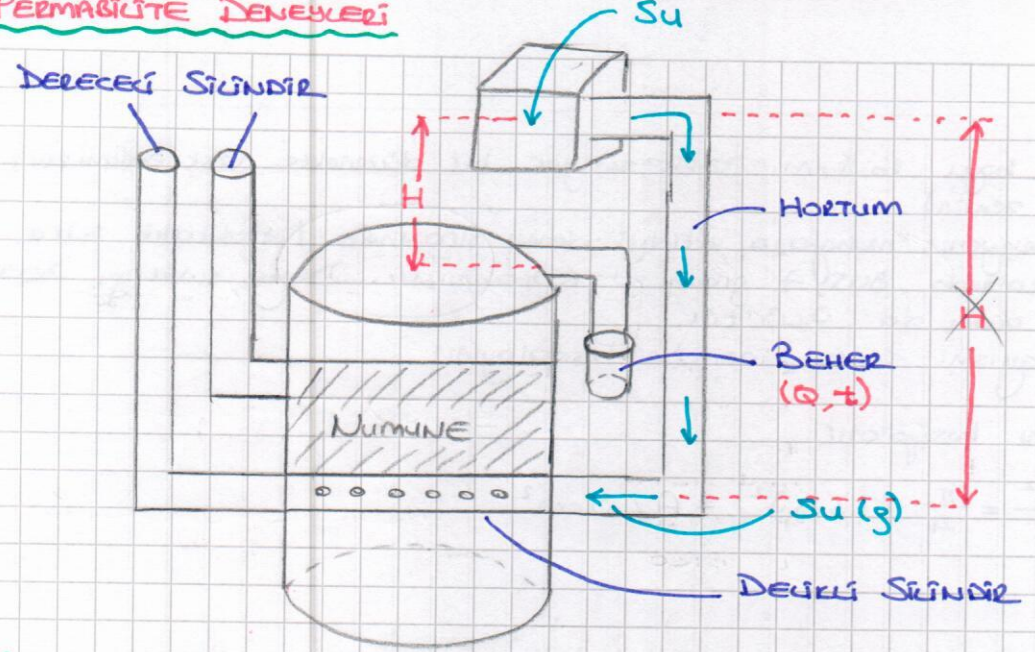 PERMABİLİTE DENEYLERİ
Su
DERECELİ SİLİNDİR
H
HORTUM
H
BEHER
(Q, t)
NUMUNE
Su (g)
DELİKLİ SİLİNDİR